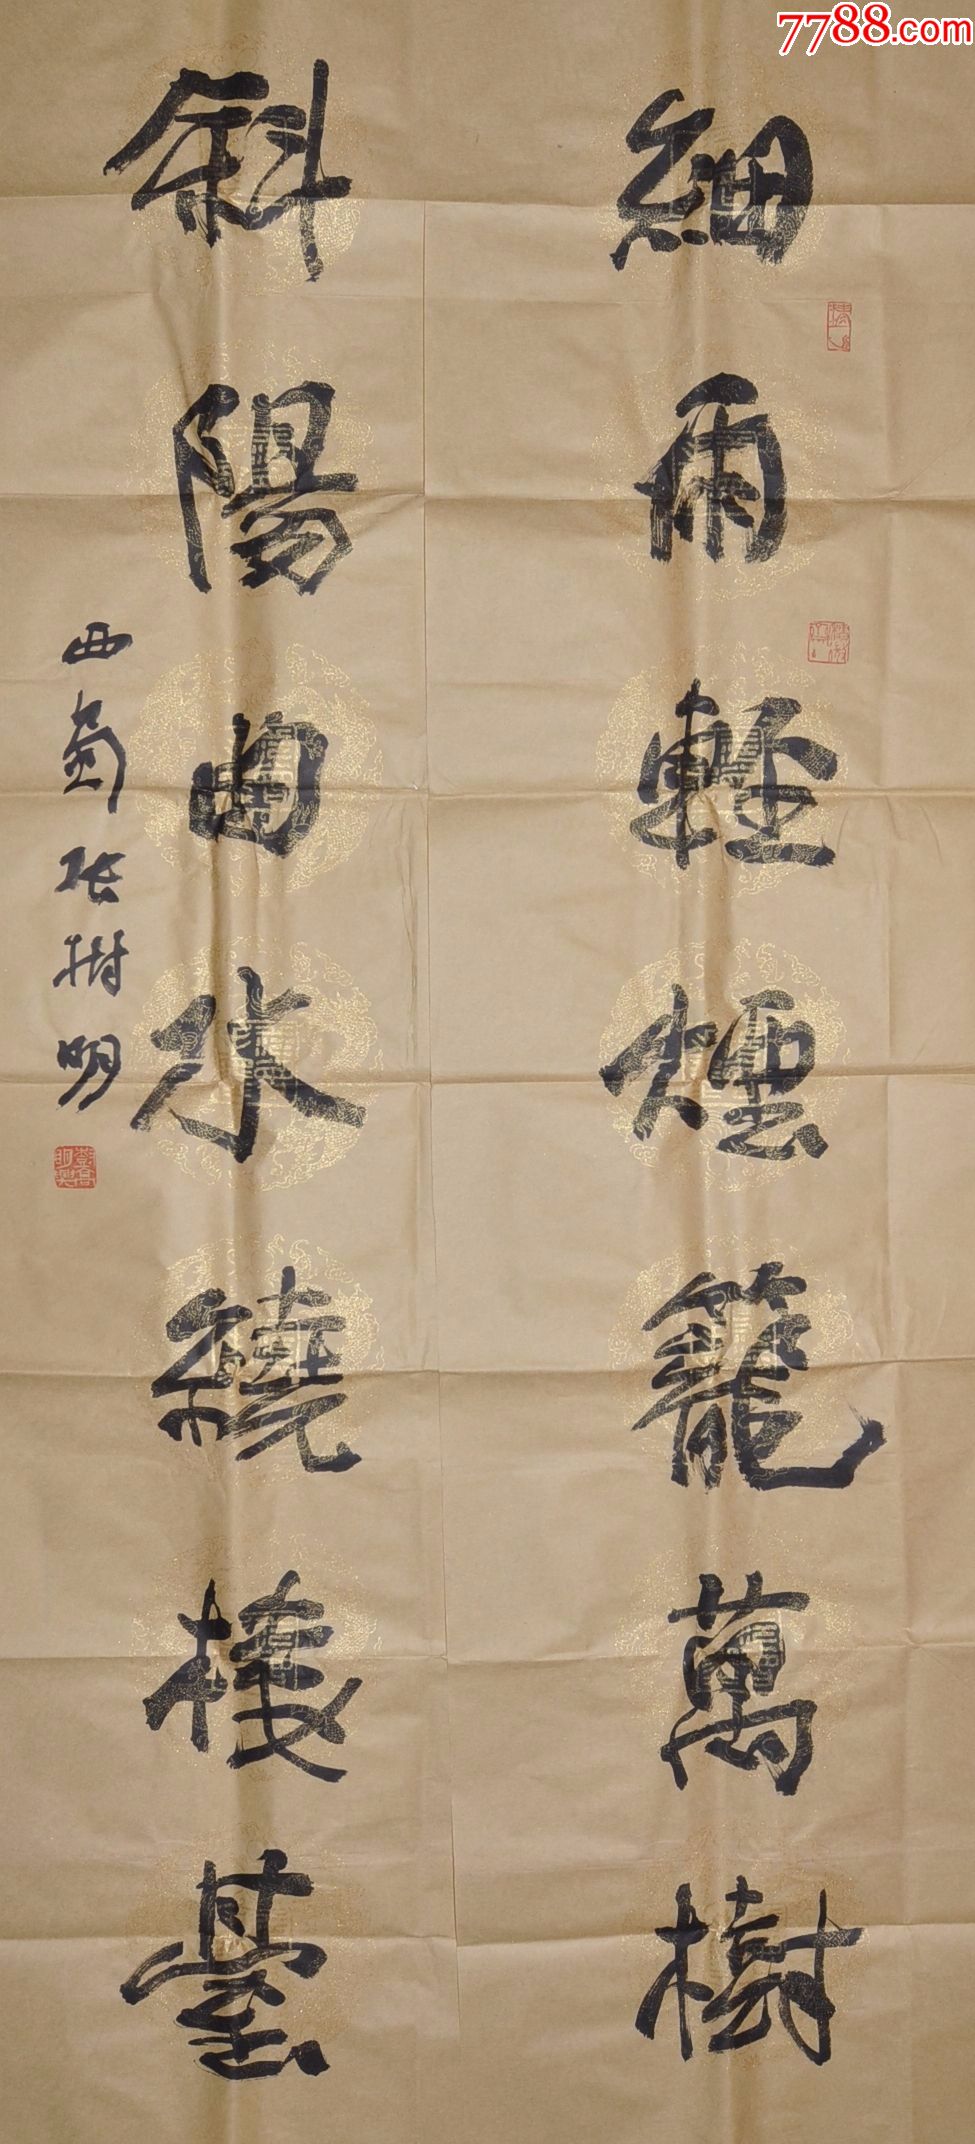 細雨輕煙籠萬樹
斜陽曲水繞樓臺
西蜀張樹明
7788.com